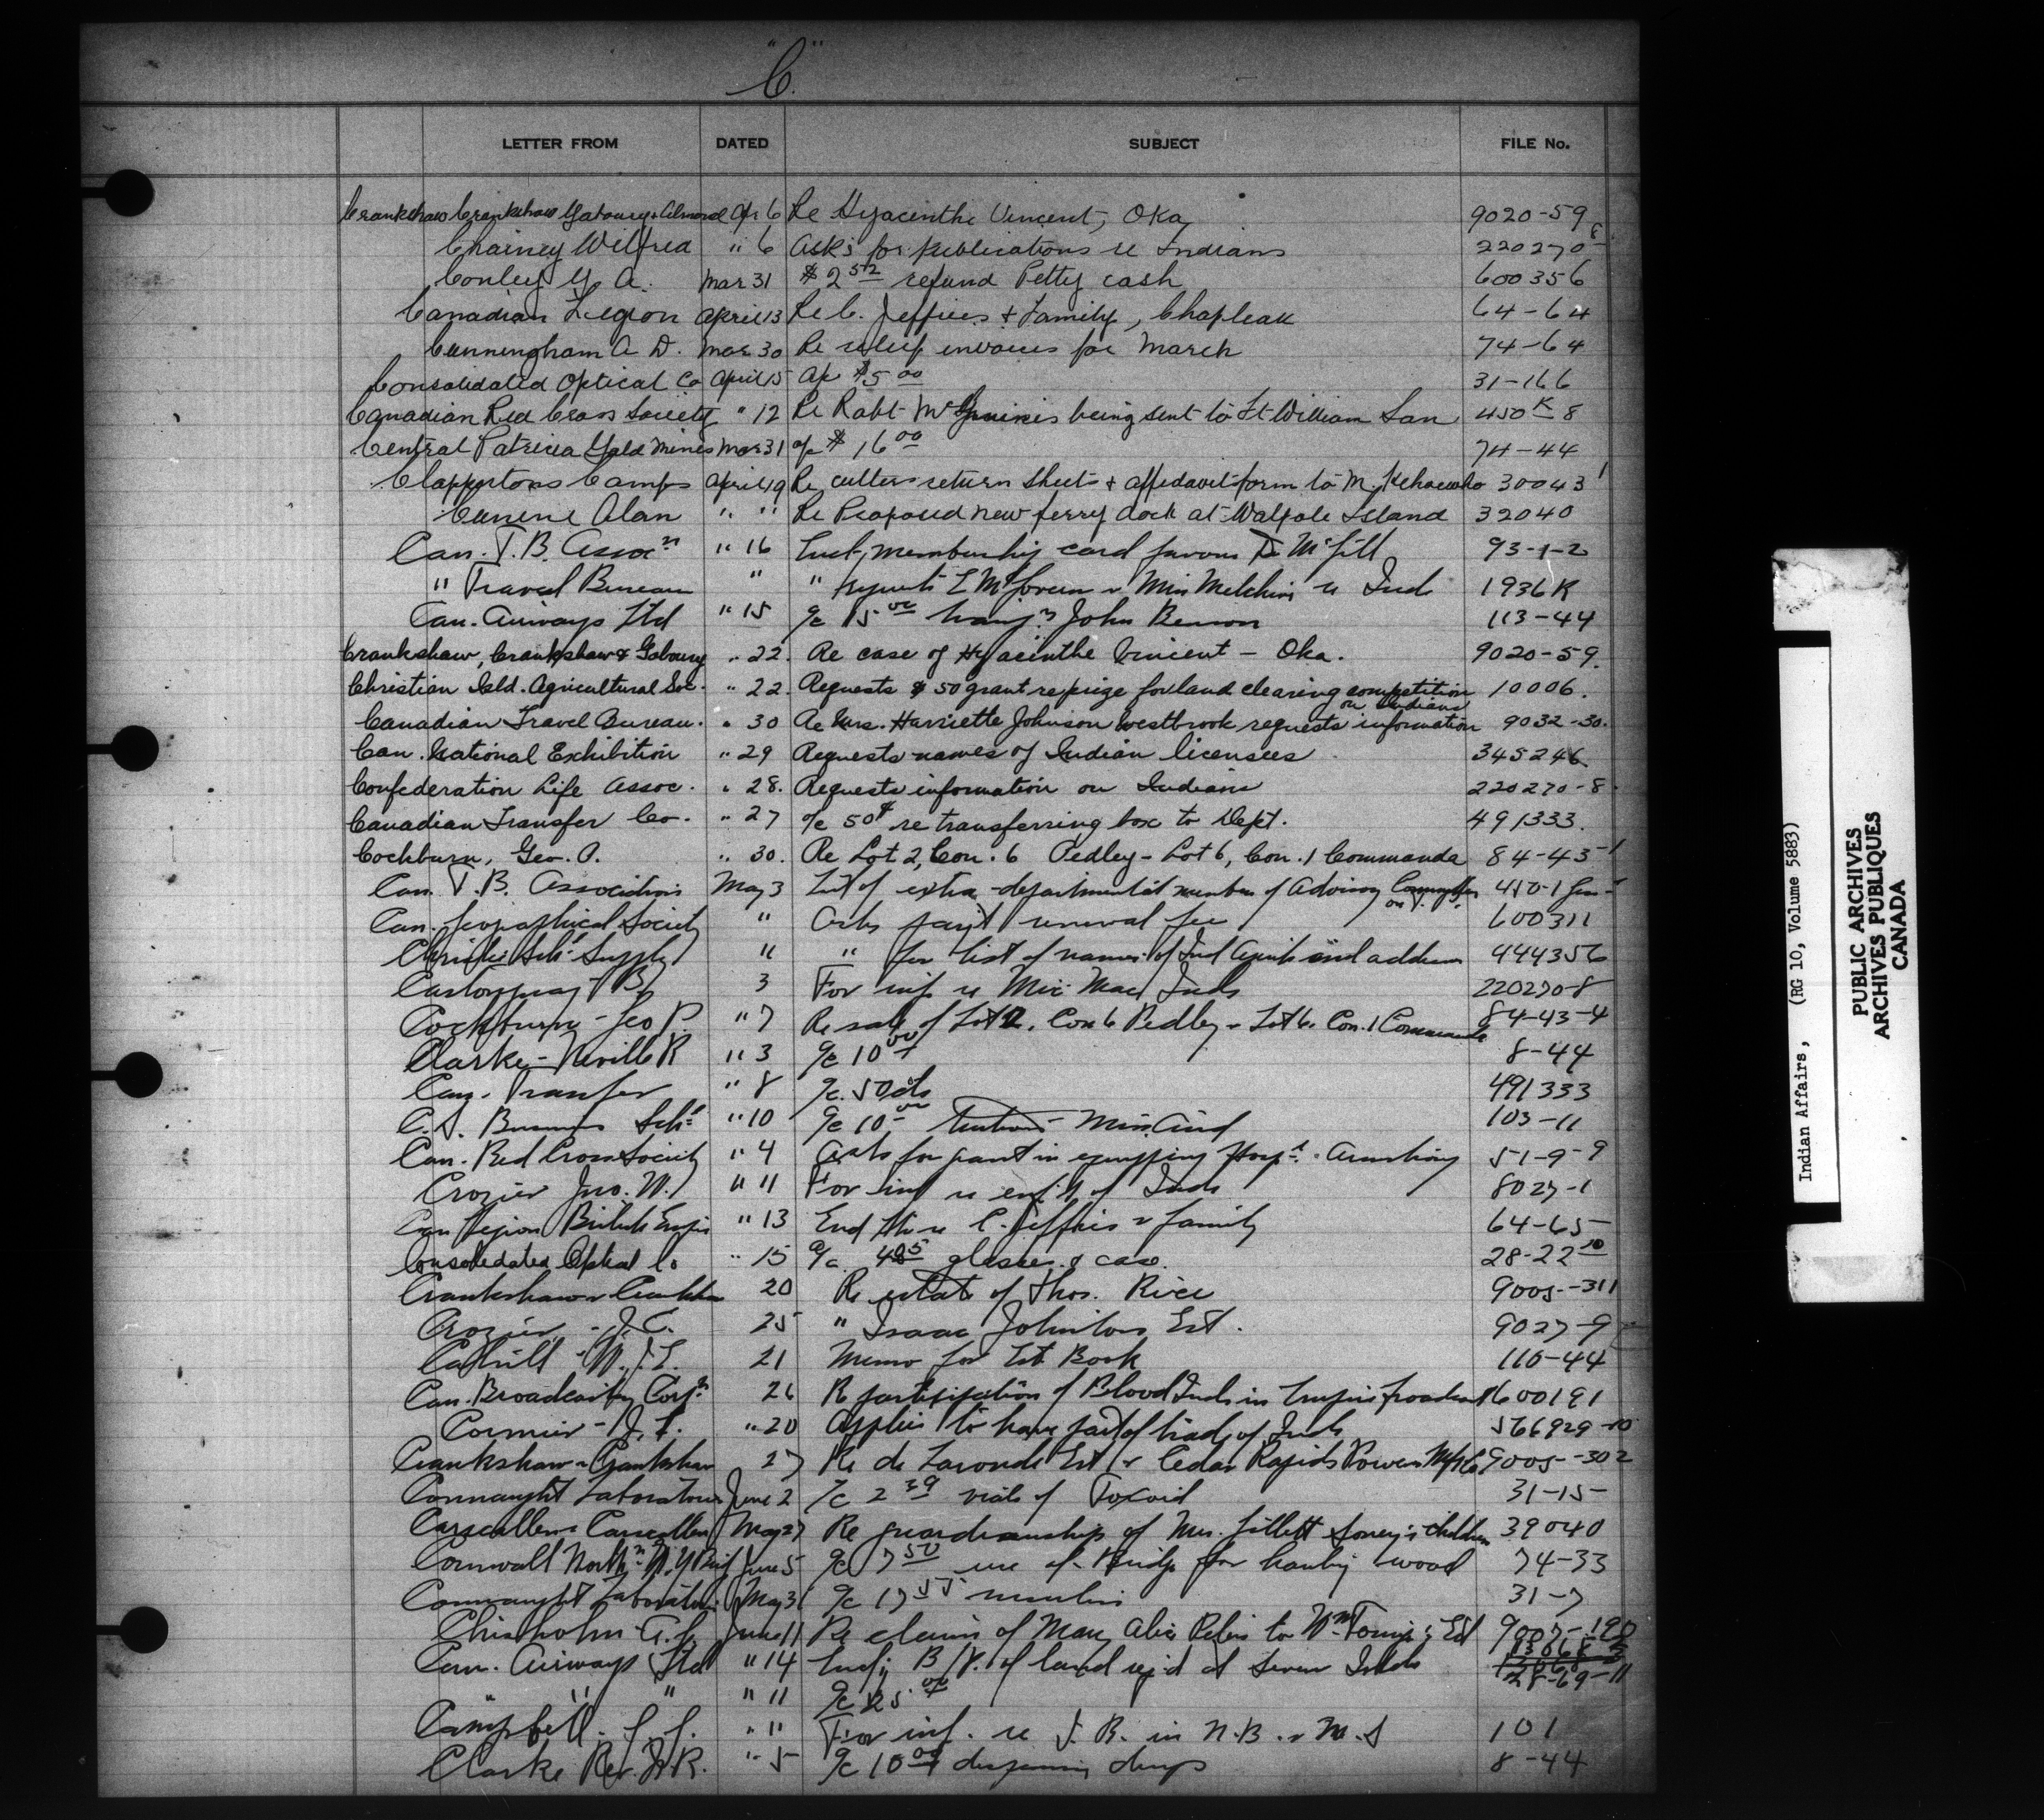 "C."
LETTER FROM DATED SUBJECT FILE No.
Crankshaw Crankshaw Gaboury & Almond Apr 6 Re Hyacinthe Vincent, Oka 9020-59
Chainey Wilfred " 6 Asks for publications re Indians 220270-8
Conley G. A. Mar 31 $2 52 refund Petty cash 600356
Canadian Legion April 13 Re C. Jeffries & Family, Chapleau 64-64
Cunningham A D. Mar 30 Re relief invoices for March 74-64
Consolidated Optical Co April 15 a/c $5 00 31-166
Canadian Red Cross Society " 12 Re Robt McGuinis being sent to Ft William San 450 K 8
Central Patricia Gold Mines Mar 31 a/c $16 00 74-44
Clappertons Camps April 19 Re cullers return sheets & affidavit form to M. 30043 1
Alan " " Re Proposed new ferry dock at Walpole Island 32040
Can. T.B. Assocn " 16 membership card favour Dr McGill 93-1-2
" Travel Bureau " " 1936 K
Can. Airways Ltd " 15 a/c 15 00 John Benson 113-44
Crankshaw, Crankshaw & Gaboury " 22. Re case of Hyacinthe Vincent - Oka. 9020-59.
Christian Isld. Agricultural Soc. " 22. Requests $50 grant re prize for land clearing competition 10006.
on Indians
Canadian Travel Bureau. " 30 Re Mrs. Harriette Johnson Westbrook requests information 9032-30.
Can. National Exhibition " 29 Requests names of Indian licensees 345246
Confederation Life Assoc. " 28. Requests information on Indians 220270-8.
Canadian Transfer Co. " 27 a/c 50¢ re transferring box to Dept. 491333.
Cockburn, Geo. P. " 30. Re Lot 2, Con. 6 Pedley - Lot 6, Con. 1 Commanda 84-43-1
Can. T.B. Association May 3 List of extra-departmental members of Advisory Committee on T.B. 450-1
Can. Geographical Society " Asks paymt renewal fee 600311
Christie Schl Supply " " for list of names of Ind Agents and address 444356
3 For inf re Mic Mac Inds 220270-8
Cockburn - Geo P. " 7 Re sale of Lot 2. Con 6 Pedley & Lot 6. Con. 1 Commanda 84-43-4
Clarke - Neville R " 3 a/c 10 00 8-44
Can. Transfer " 8 a/c. 50 cts 491333
" 10 a/c 10 00 tuition Miss 103-11
Can. Red Cross Society " 4 Asks for grant in equipping Hospl. Armstrong 51-9-9
Crozier Jno. W. " 11 For inf re enfct of Inds 8027-1
Can Legion British Empire " 13 C. Jeffries & family 64-65
Consolidated Optical Co " 15 a/c. 4 85 glasses & case. 28-22
Crankshaw & Crankshaw 20 Re estate of Thos. Rice 9005-311
Crozier - J. C. 25 " Isaac Johnston Est. 9027-9
21 Memo for Lib Book 110-44
Can. Broadcasting Corpn 26 Re participation of Blood Inds in Empire broadcast 600191
Cormier - J. " 20 Applies to have part of trade of Inds 566929-10
Crankshaw & Crankshaw 27 Re de Laronde Est & Cedar Rapids Power Mfg Co 9005-302
Connaught Laboratories June 2 a/c 2 39 vials of Toxoid 31-15
Carscallen & Carscallen May 27 Re guardianship of Mrs. Gillett children 39040
Cornwall Northn N.Y. Brid June 5 a/c 7 50 use of Bridge for hauling wood 74-33
Connaught Laboratories May 31 a/c 17 55 insulin 31-7
Chisholm A. June 11 Re claim of Mary Alice to Wm Est 9007-190
Can. Airways Ltd " 14 of land reqd at Seven Islds
" " " " 11 a/c 25 00 28-69-11
Campbell " 11 For inf. re T.B. in N.B. & N.S 101
Clarke Rev. " 5 a/c 10 00 dispensing drugs 8-44
Indian Affairs, (RG 10, Volume 5883)
PUBLIC ARCHIVES
ARCHIVES PUBLIQUES
CANADA